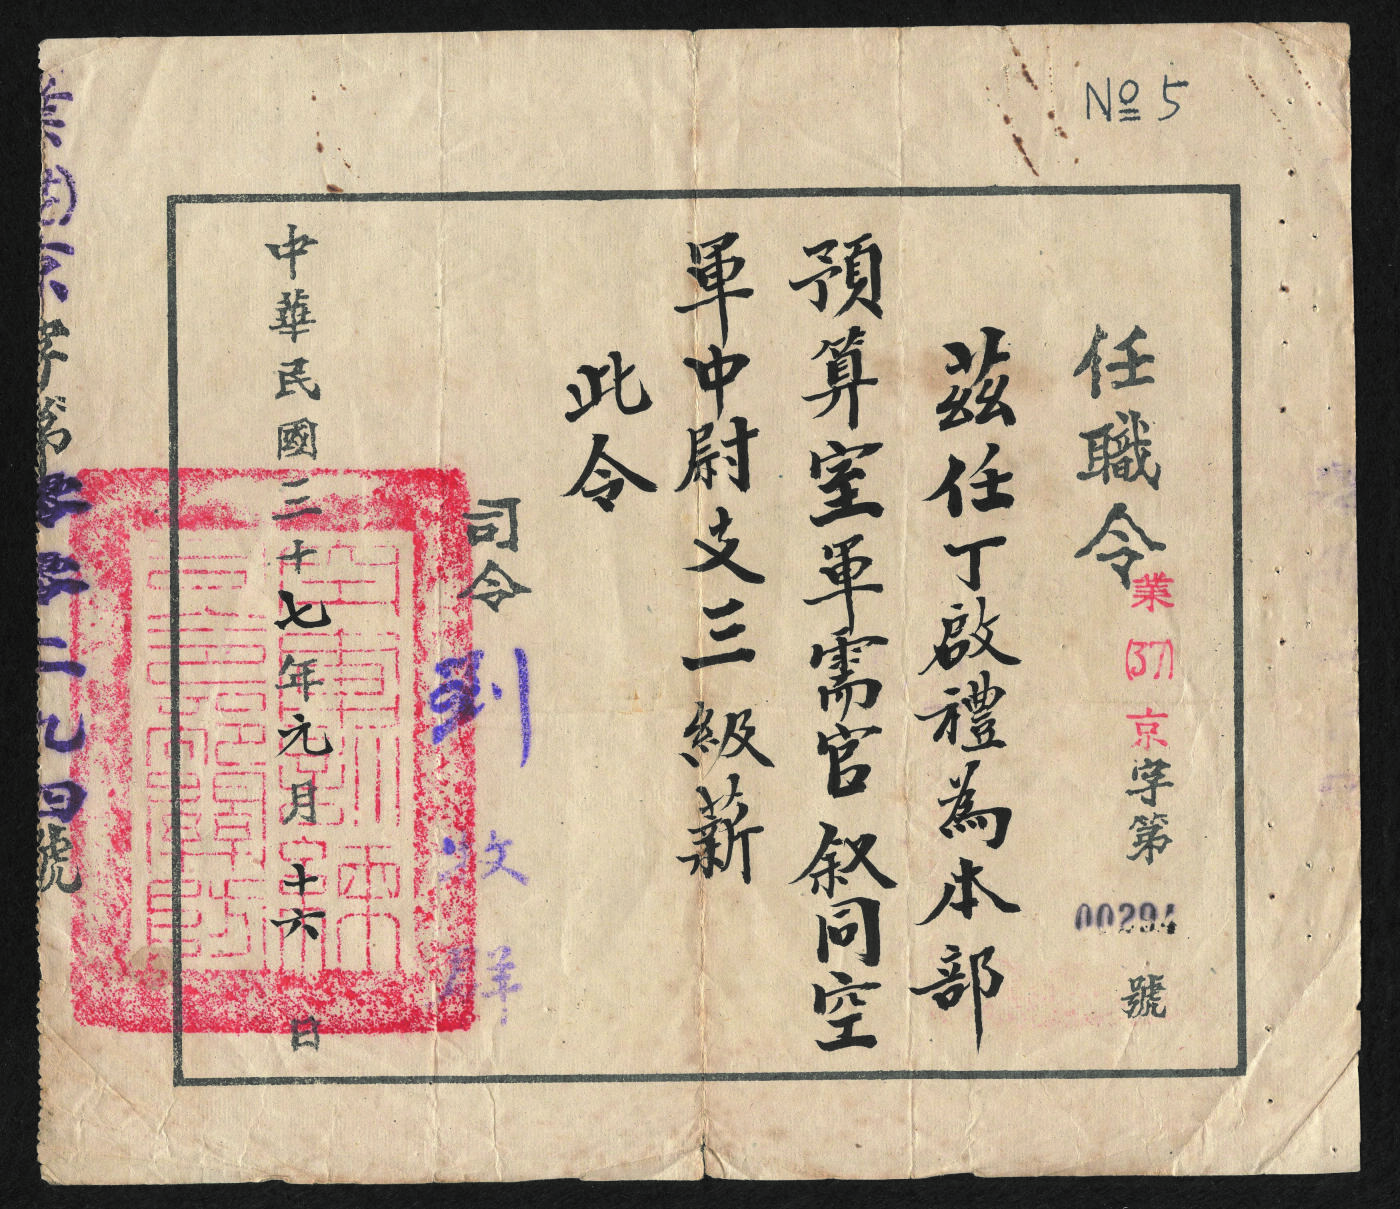 No 5
任職令
業(37)京字第00294號
茲任丁啟禮為本部
預算室軍需官敘同空
軍中尉支三級薪
此令
司令 劉牧群
中華民國三十七年元月十六日
業(37)京字第零零二九四號